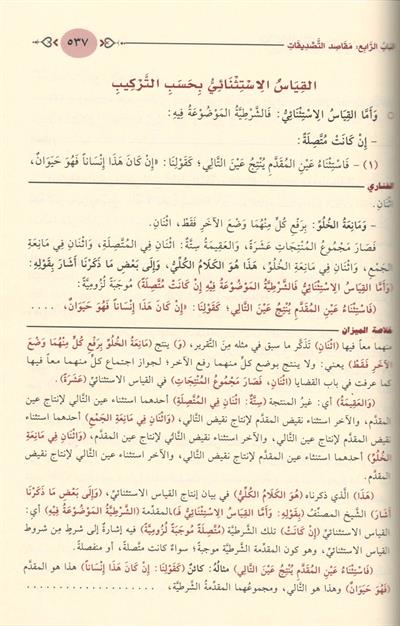 الباب الرَّابع: مَقَاصِد التَّصْدِيقَاتِ
٥٣٧
القِيَاسُ الِاسْتِثْنَائِيُّ بِحَسَبِ التَّرْكِيبِ
○ وَأَمَّا القِيَاسُ الِاسْتِثْنَائِيُّ: فَالشَّرْطِيَّةُ المَوْضُوعَةُ فِيهِ:
- إِنْ كَانَتْ مُتَّصِلَةً:
(١) - فَاسْتِثْنَاءُ عَيْنِ المُقَدَّمِ يُنْتِجُ عَيْنَ التَّالِي؛ كَقَوْلِنَا: «إِنْ كَانَ هَذَا إِنْسَاناً فَهُوَ حَيَوَانٌ،
الفناري
اثْنَانِ.
- وَمَانِعَةُ الخُلُوِّ: بِرَفْعِ كُلٍّ مِنْهُمَا وَضْعَ الآخَرِ فَقَطْ، اثْنَانِ.
فَصَارَ مَجْمُوعُ المُنْتِجَاتِ عَشَرَةً، وَالعَقِيمَةُ سِتَّةً: اثْنَانِ فِي المُتَّصِلَةِ، وَاثْنَانِ فِي مَانِعَةِ
الجَمْعِ، وَاثْنَانِ فِي مَانِعَةِ الخُلُوِّ، هَذَا هُوَ الكَلَامُ الكُلِّيُّ، وَإِلَى بَعْضِ مَا ذَكَرْنَا أَشَارَ بِقَوْلِهِ:
(وَأَمَّا القِيَاسُ الِاسْتِثْنَائِيُّ فَالشَّرْطِيَّةُ المَوْضُوعَةُ فِيهِ إِنْ كَانَتْ مُتَّصِلَةً) مُوجَبَةً لُزُومِيَّةً:
(فَاسْتِثْنَاءُ عَيْنِ المُقَدَّمِ يُنْتِجُ عَيْنَ التَّالِي؛ كَقَوْلِنَا: «إِنْ كَانَ هَذَا إِنْسَاناً فَهُوَ حَيَوَانٌ، ...
خلاصة الميزان
منهما معاً فيها (اثْنَانِ) تَذَكَّر ما سبق في مثله مِنَ التَّقرير، (وَ) ينتج (مَانِعَةُ الخُلُوِّ بِرَفْعِ كُلٍّ مِنْهُمَا وَضْعَ
الآخَرِ فَقَطْ) يعني: ولا ينتج بوضع كلٍّ منهما رفع الآخر؛ لجواز اجتماع كلٍّ منهما معاً فيها
كما عرفت في باب القضايا (اثْنَانِ، فَصَارَ مَجْمُوعُ المُنْتِجَاتِ) في القياس الاستثنائيِّ (عَشَرَةً).
(وَالعَقِيمَةُ) أي: غيرُ المنتجة (سِتَّةً: اثْنَانِ فِي المُتَّصِلَةِ) أحدهما استثناء عين التَّالي لإنتاج عين
المقدَّم، والآخر استثناء نقيض المقدَّم لإنتاج نقيض التَّالي، (وَاثْنَانِ فِي مَانِعَةِ الجَمْعِ) أحدهما استثناء
نقيض المقدَّم لإنتاج عين التَّالي، والآخر استثناء نقيض التَّالي لإنتاج عين المقدَّم، (وَاثْنَانِ فِي مَانِعَةِ
الخُلُوِّ) أحدهما استثناء عين المقدَّم لإنتاج نقيض التَّالي، والآخر استثناء عين التَّالي لإنتاج نقيض
المقدَّم.
(هَذَا) الَّذي ذكرناه (هُوَ الكَلَامُ الكُلِّيُّ) في بيان إنتاج القياس الاستثنائيِّ، (وَإِلَى بَعْضِ مَا ذَكَرْنَا
أَشَارَ) الشَّيخ المصنِّف (بِقَوْلِهِ: وَأَمَّا القِيَاسُ الِاسْتِثْنَائِيُّ فَـ)المقدِّمة (الشَّرْطِيَّةُ المَوْضُوعَةُ فِيهِ) أي:
القياسِ الاستثنائيِّ (إِنْ كَانَتْ) تلك الشَّرطيَّة (مُتَّصِلَةً مُوجَبَةً لُزُومِيَّةً) فيه إشارة إلى شرطٍ مِن شروط
القياس الاستثنائيِّ، وهو كون المقدِّمة الشَّرطيَّة موجبةً؛ سواءٌ كانت متَّصلةً، أو منفصلةً.
(فَاسْتِثْنَاءُ عَيْنِ المُقَدَّمِ يُنْتِجُ عَيْنَ التَّالِي) مثالُهُ: كائنٌ (كَقَوْلِنَا: إِنْ كَانَ هَذَا إِنْسَاناً) هذا هو المقدَّم
(فَهُوَ حَيَوَانٌ) وهذا هو التَّالي، ومجموعُهما المقدِّمةُ الشَّرطيَّة، ........................